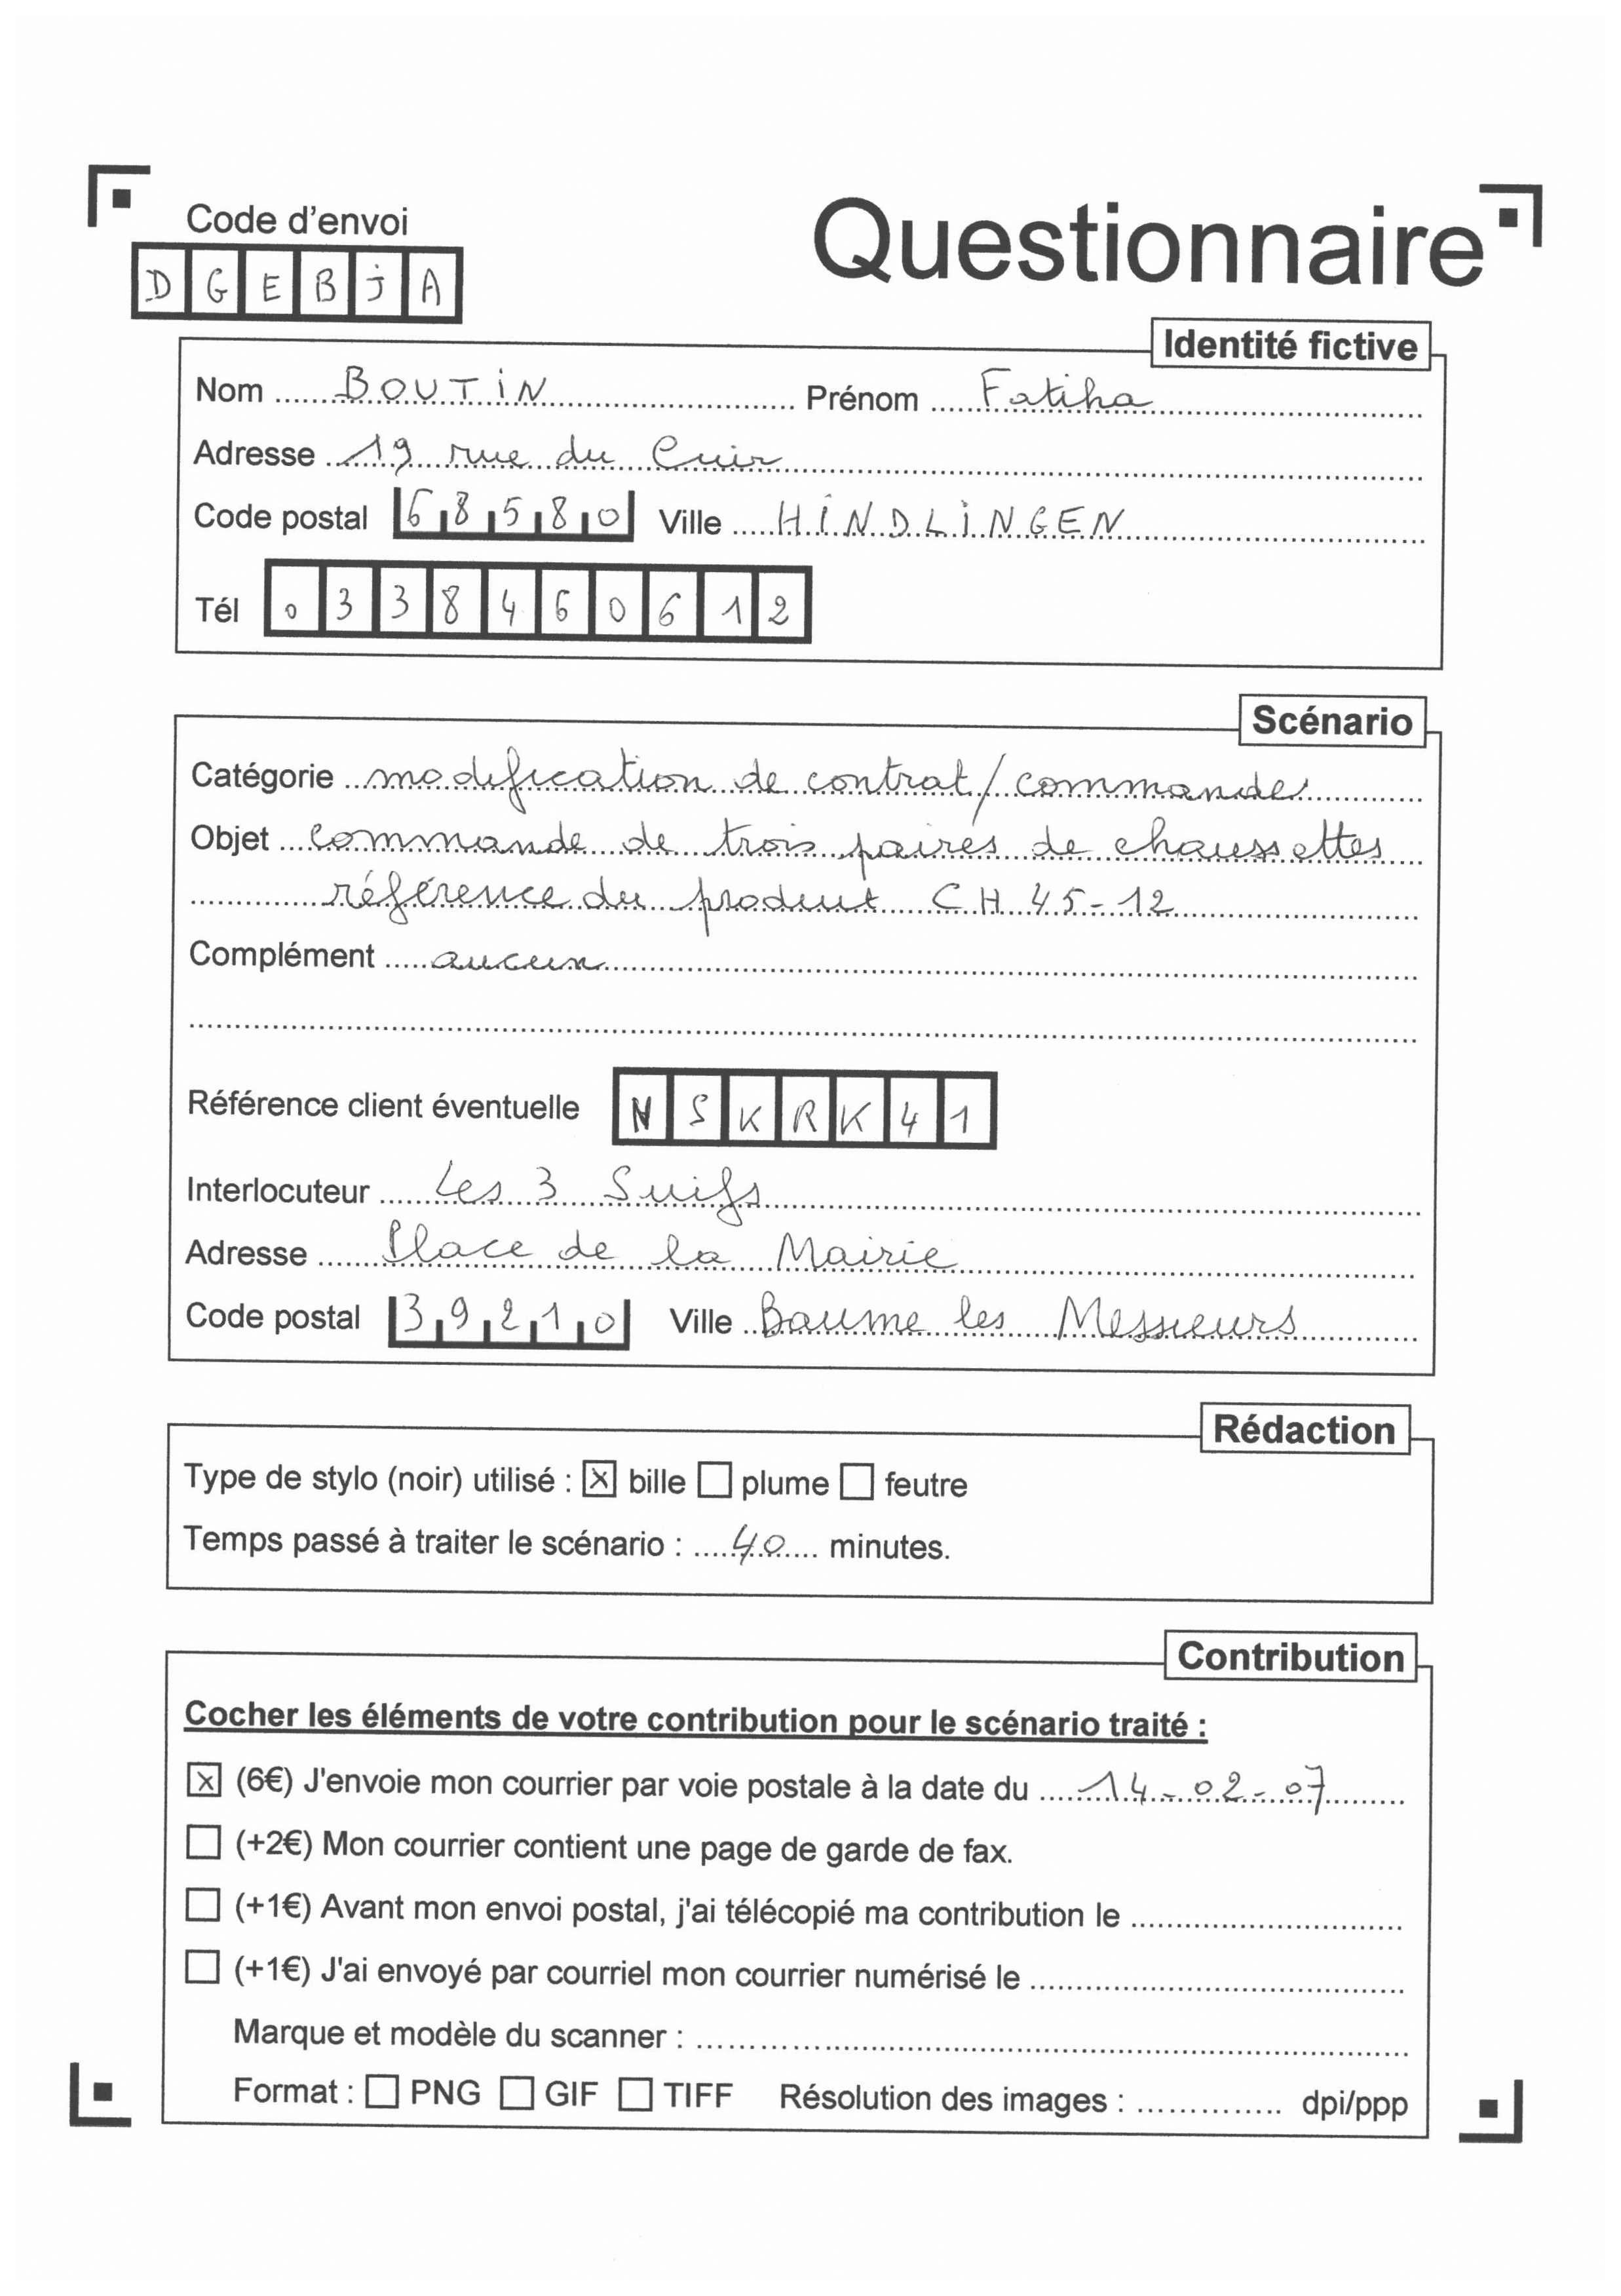 Code d'envoi
Questionnaire
DGEBjA
Identité fictive
Nom BOUTiN Prénom Fatiha
Adresse 19 rue du Cuir
Code postal 68580 Ville HiNDLiNGEN
Tél 0338460612
Scénario
Catégorie modification de contrat/commandes
Objet commande de trois paires de chaussettes
référence du produit CH 45-12
Complément aucun
Référence client éventuelle NSKRK41
Interlocuteur Les 3 Suifs
Adresse Place de la Mairie
Code postal 39210 Ville Baume les Messieurs
Rédaction
Type de stylo (noir) utilisé : ☒ bille ☐ plume ☐ feutre
Temps passé à traiter le scénario : 40 minutes.
Contribution
Cocher les éléments de votre contribution pour le scénario traité :
☒ (6€) J'envoie mon courrier par voie postale à la date du 14-02-07
☐ (+2€) Mon courrier contient une page de garde de fax.
☐ (+1€) Avant mon envoi postal, j'ai télécopié ma contribution le
☐ (+1€) J'ai envoyé par courriel mon courrier numérisé le
Marque et modèle du scanner :
Format : ☐ PNG ☐ GIF ☐ TIFF Résolution des images : dpi/ppp